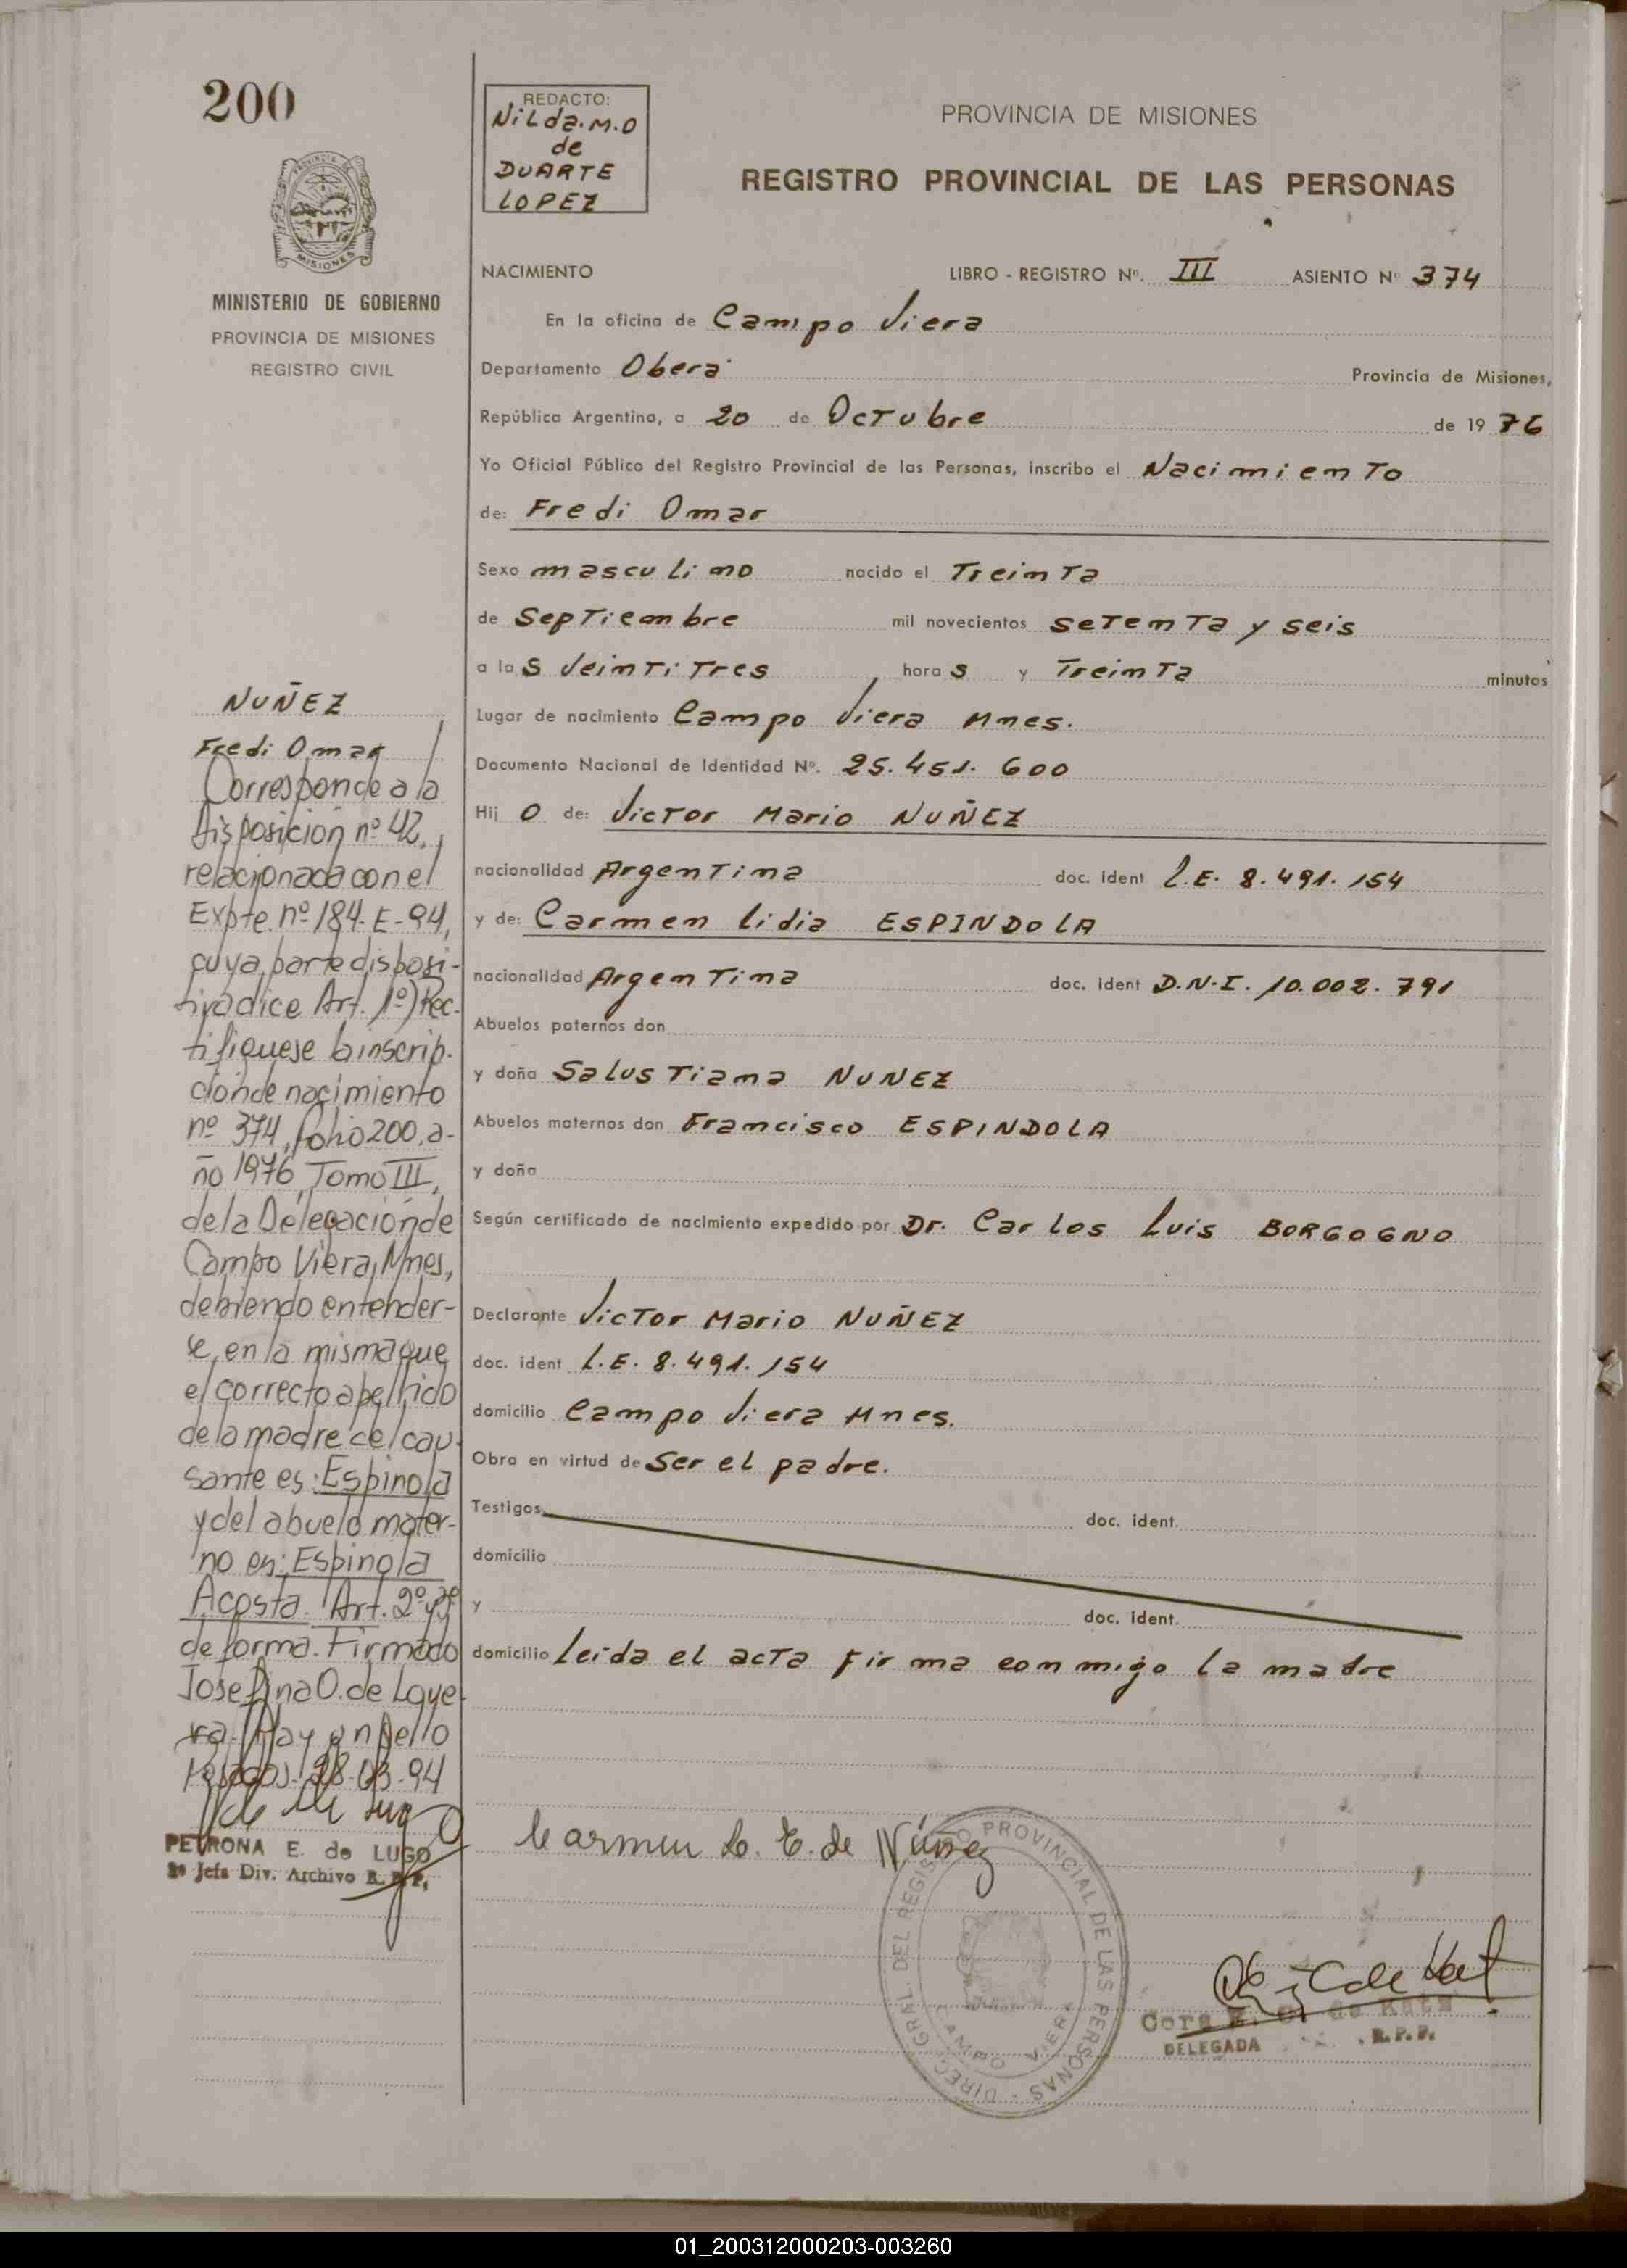 200
MISIONES
MINISTERIO DE GOBIERNO
PROVINCIA DE MISIONES
REGISTRO CIVIL
REDACTO:
Nilda.M.O
de
DUARTE
LOPEZ
PROVINCIA DE MISIONES
REGISTRO PROVINCIAL DE LAS PERSONAS
NACIMIENTO LIBRO - REGISTRO Nº. III ASIENTO Nº 374
En la oficina de Campo Viera
Departamento Oberá Provincia de Misiones,
República Argentina, a 20 de Octubre de 1976
Yo Oficial Público del Registro Provincial de las Personas, inscribo el Nacimiento
de: Fredi Omar
Sexo masculino nacido el Treinta
de Septiembre mil novecientos setenta y seis
a las Veintitres horas y Treinta minutos
Lugar de nacimiento Campo Viera Mnes.
Documento Nacional de Identidad Nº. 25.451.600
Hijo de: Victor Mario NUÑEZ
nacionalidad Argentina doc. ident L.E. 8.491.154
y de: Carmen Lidia ESPINDOLA
nacionalidad Argentina doc. ident D.N.I. 10.002.791
Abuelos paternos don
y doña Salustiana NUNEZ
Abuelos maternos don Francisco ESPINDOLA
y doña
Según certificado de nacimiento expedido por Dr. Carlos Luis BORGOGNO
Declarante Victor Mario NUÑEZ
doc. ident L.E. 8.491.154
domicilio Campo Viera Mnes.
Obra en virtud de Ser el padre.
Testigos doc. ident.
domicilio
y doc. ident.
domicilio Leida el acta firma conmigo la madre
Carmen L. E. de Núñez
DIREC. GRAL. DEL REGISTRO PROVINCIAL DE LAS PERSONAS
CAMPO VIERA
DELEGADA R.P.P.
NUÑEZ
Fredi Omar
Corresponde a la
disposición nº 42,
relacionada con el
Expte. nº 184-E-94,
cuya parte disposi-
tiva dice Art. 1º) Rec-
tifiquese la inscrip-
ción de nacimiento
nº 374, folio 200, a-
ño 1976, Tomo III,
de la Delegación de
Campo Viera, Mnes,
debiendo entender-
se, en la misma que
el correcto apellido
de la madre del cau-
sante es: Espinola
y del abuelo mater-
no es: Espinola
Acosta. Art. 2º y 3º
de forma. Firmado
Josefina O. de Loye-
ra. Hay un sello
Posadas. 28-03-94
PETRONA E. de LUGO
2º Jefa Div. Archivo R.P.P.
01_200312000203-003260